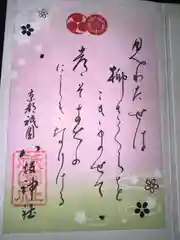 見わたせは
柳さくらを
こきませて
都そ春の
にしきなりける
京都祇園
八坂神社